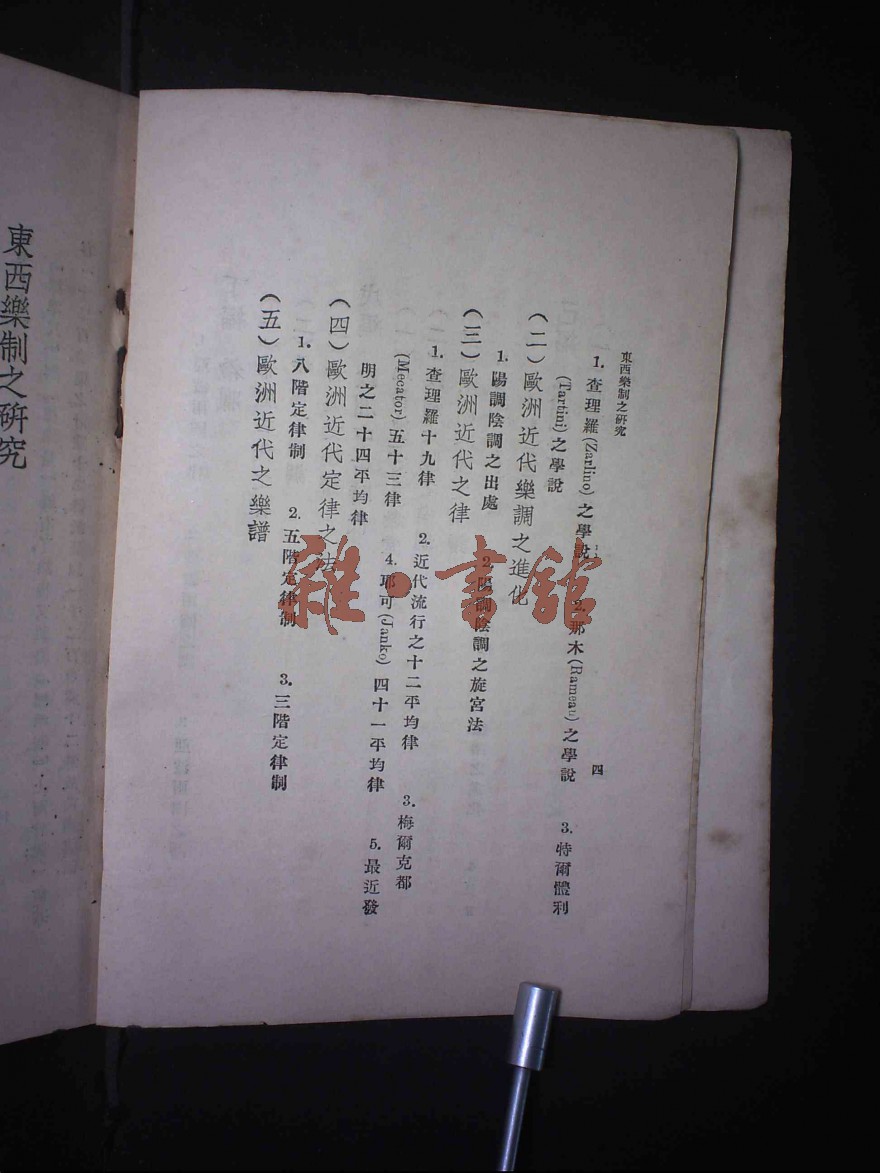 東西樂制之研究
四
1. 查理羅(Zarlino)之學說 2. 那木(Rameau)之學說 3. 特爾體利
(Tartini)之學說
(二)歐洲近代樂調之進化
1. 陽調陰調之出處 2. 陽調陰調之旋宮法
(三)歐洲近代之律
1. 查理羅十九律 2. 近代流行之十二平均律 3. 梅爾克都
(Mecator)五十三律 4. 耶可(Janko)四十一平均律 5. 最近發
明之二十四平均律
(四)歐洲近代定律之法
1. 八階定律制 2. 五階定律制 3. 三階定律制
(五)歐洲近代之樂譜
東西樂制之研究
雜·書館